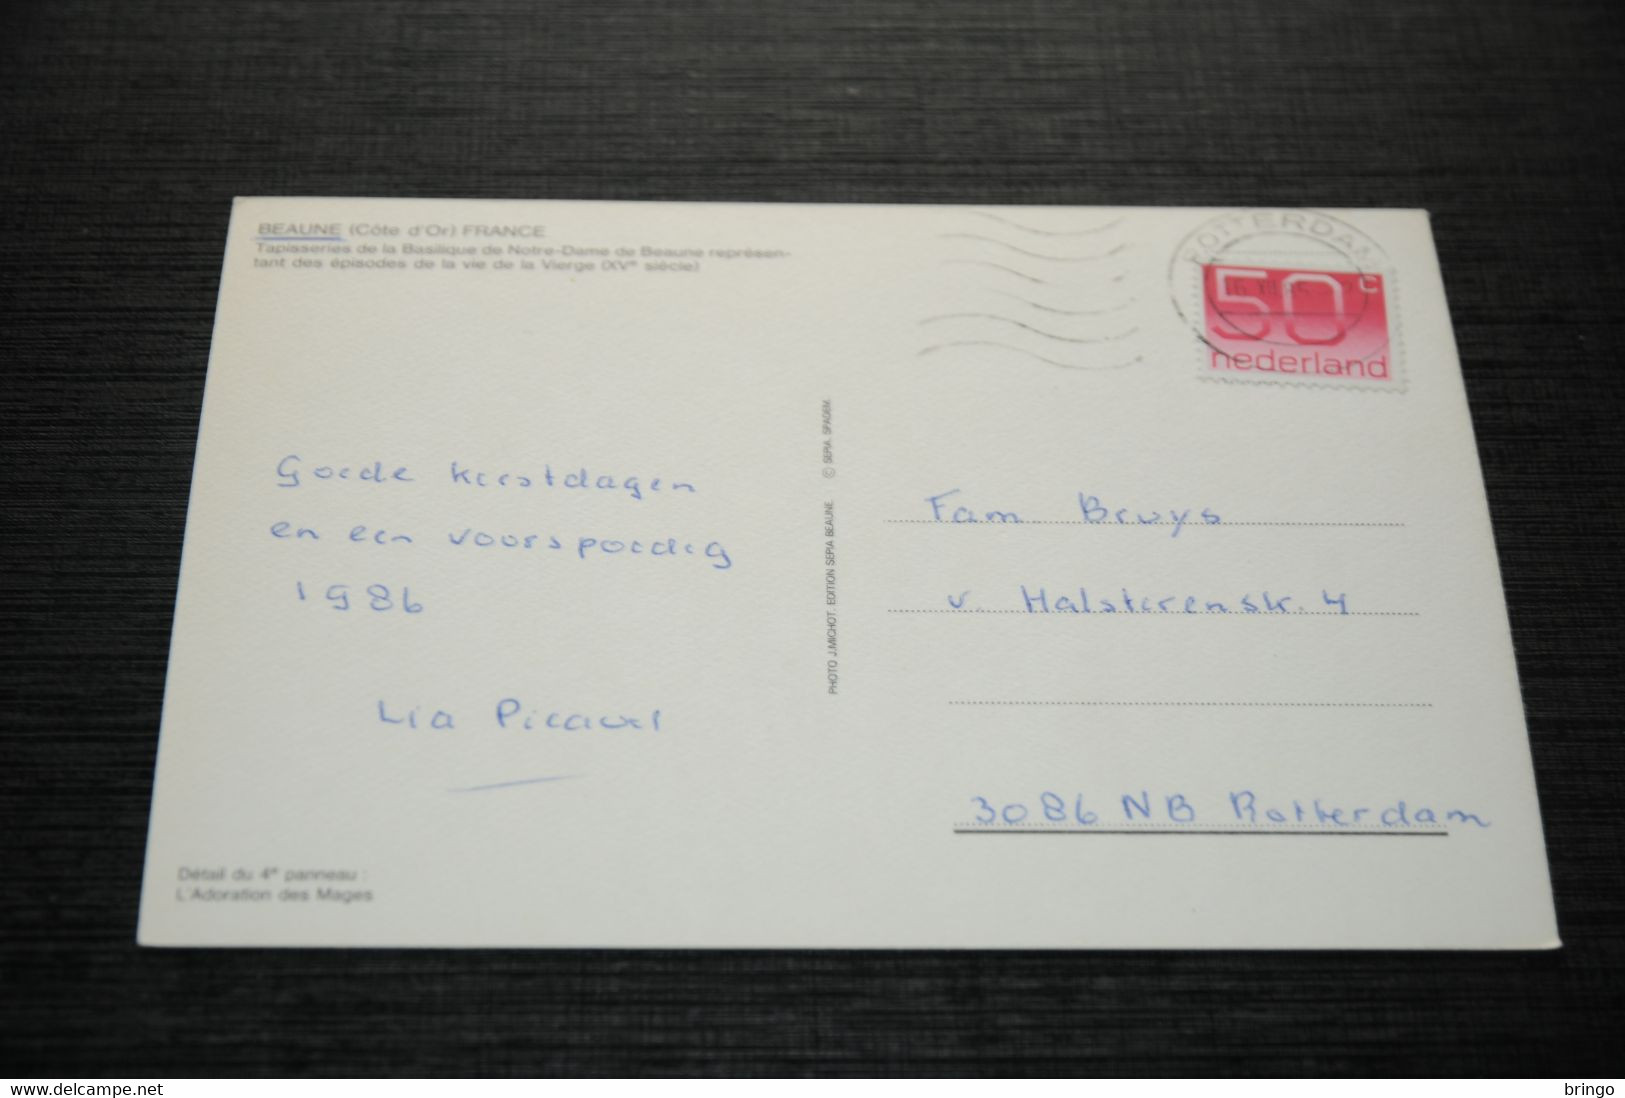 BEAUNE (Côte d'Or) FRANCE
Tapisseries de la Basilique de Notre-Dame de Beaune représen-
tant des épisodes de la vie de la Vierge (XVe siècle)
ROTTERDAM
50 c
nederland
Goede kerstdagen
en een voorspoedig
1986
Lia Picavet
Détail du 4e panneau :
L'Adoration des Mages
PHOTO J.MICHOT. EDITION SEPIA BEAUNE. © SEPIA. SPADEM.
Fam Bruys
v. Halsterenstr. 4
3086 NB Rotterdam
www.delcampe.net
bringo